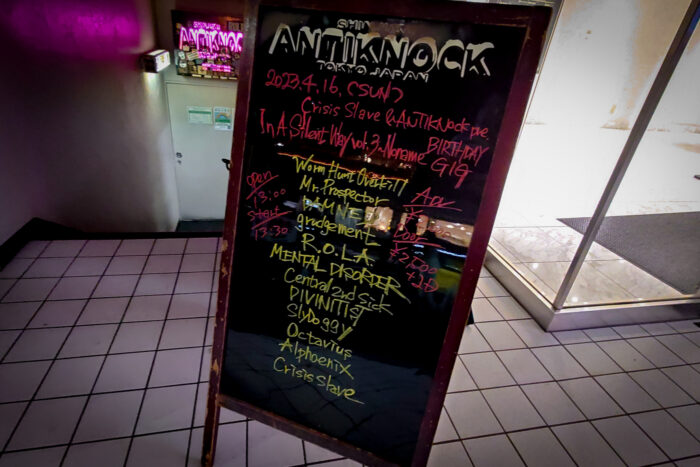 SHINJUKU
ANTIKNOCK
SHIN
ANTIKNOCK
TOKYO JAPAN
2023.4.16.(SUN)
Crisis Slave & ANTIKNOCK pre.
In A Silent Way vol.3 ~Noname BIRTHDAY Gig
open
13:00
start
13:30
Worm Hunt Overkill
Mr. Prospector
grudgement
R.O.L.A.
MENTAL DISORDER
Central 2nd Sick
DIVINITIST
SlyDoggy
Octavius
Alphoenix
Crisis Slave
Adv
Door
¥2,500
+2D